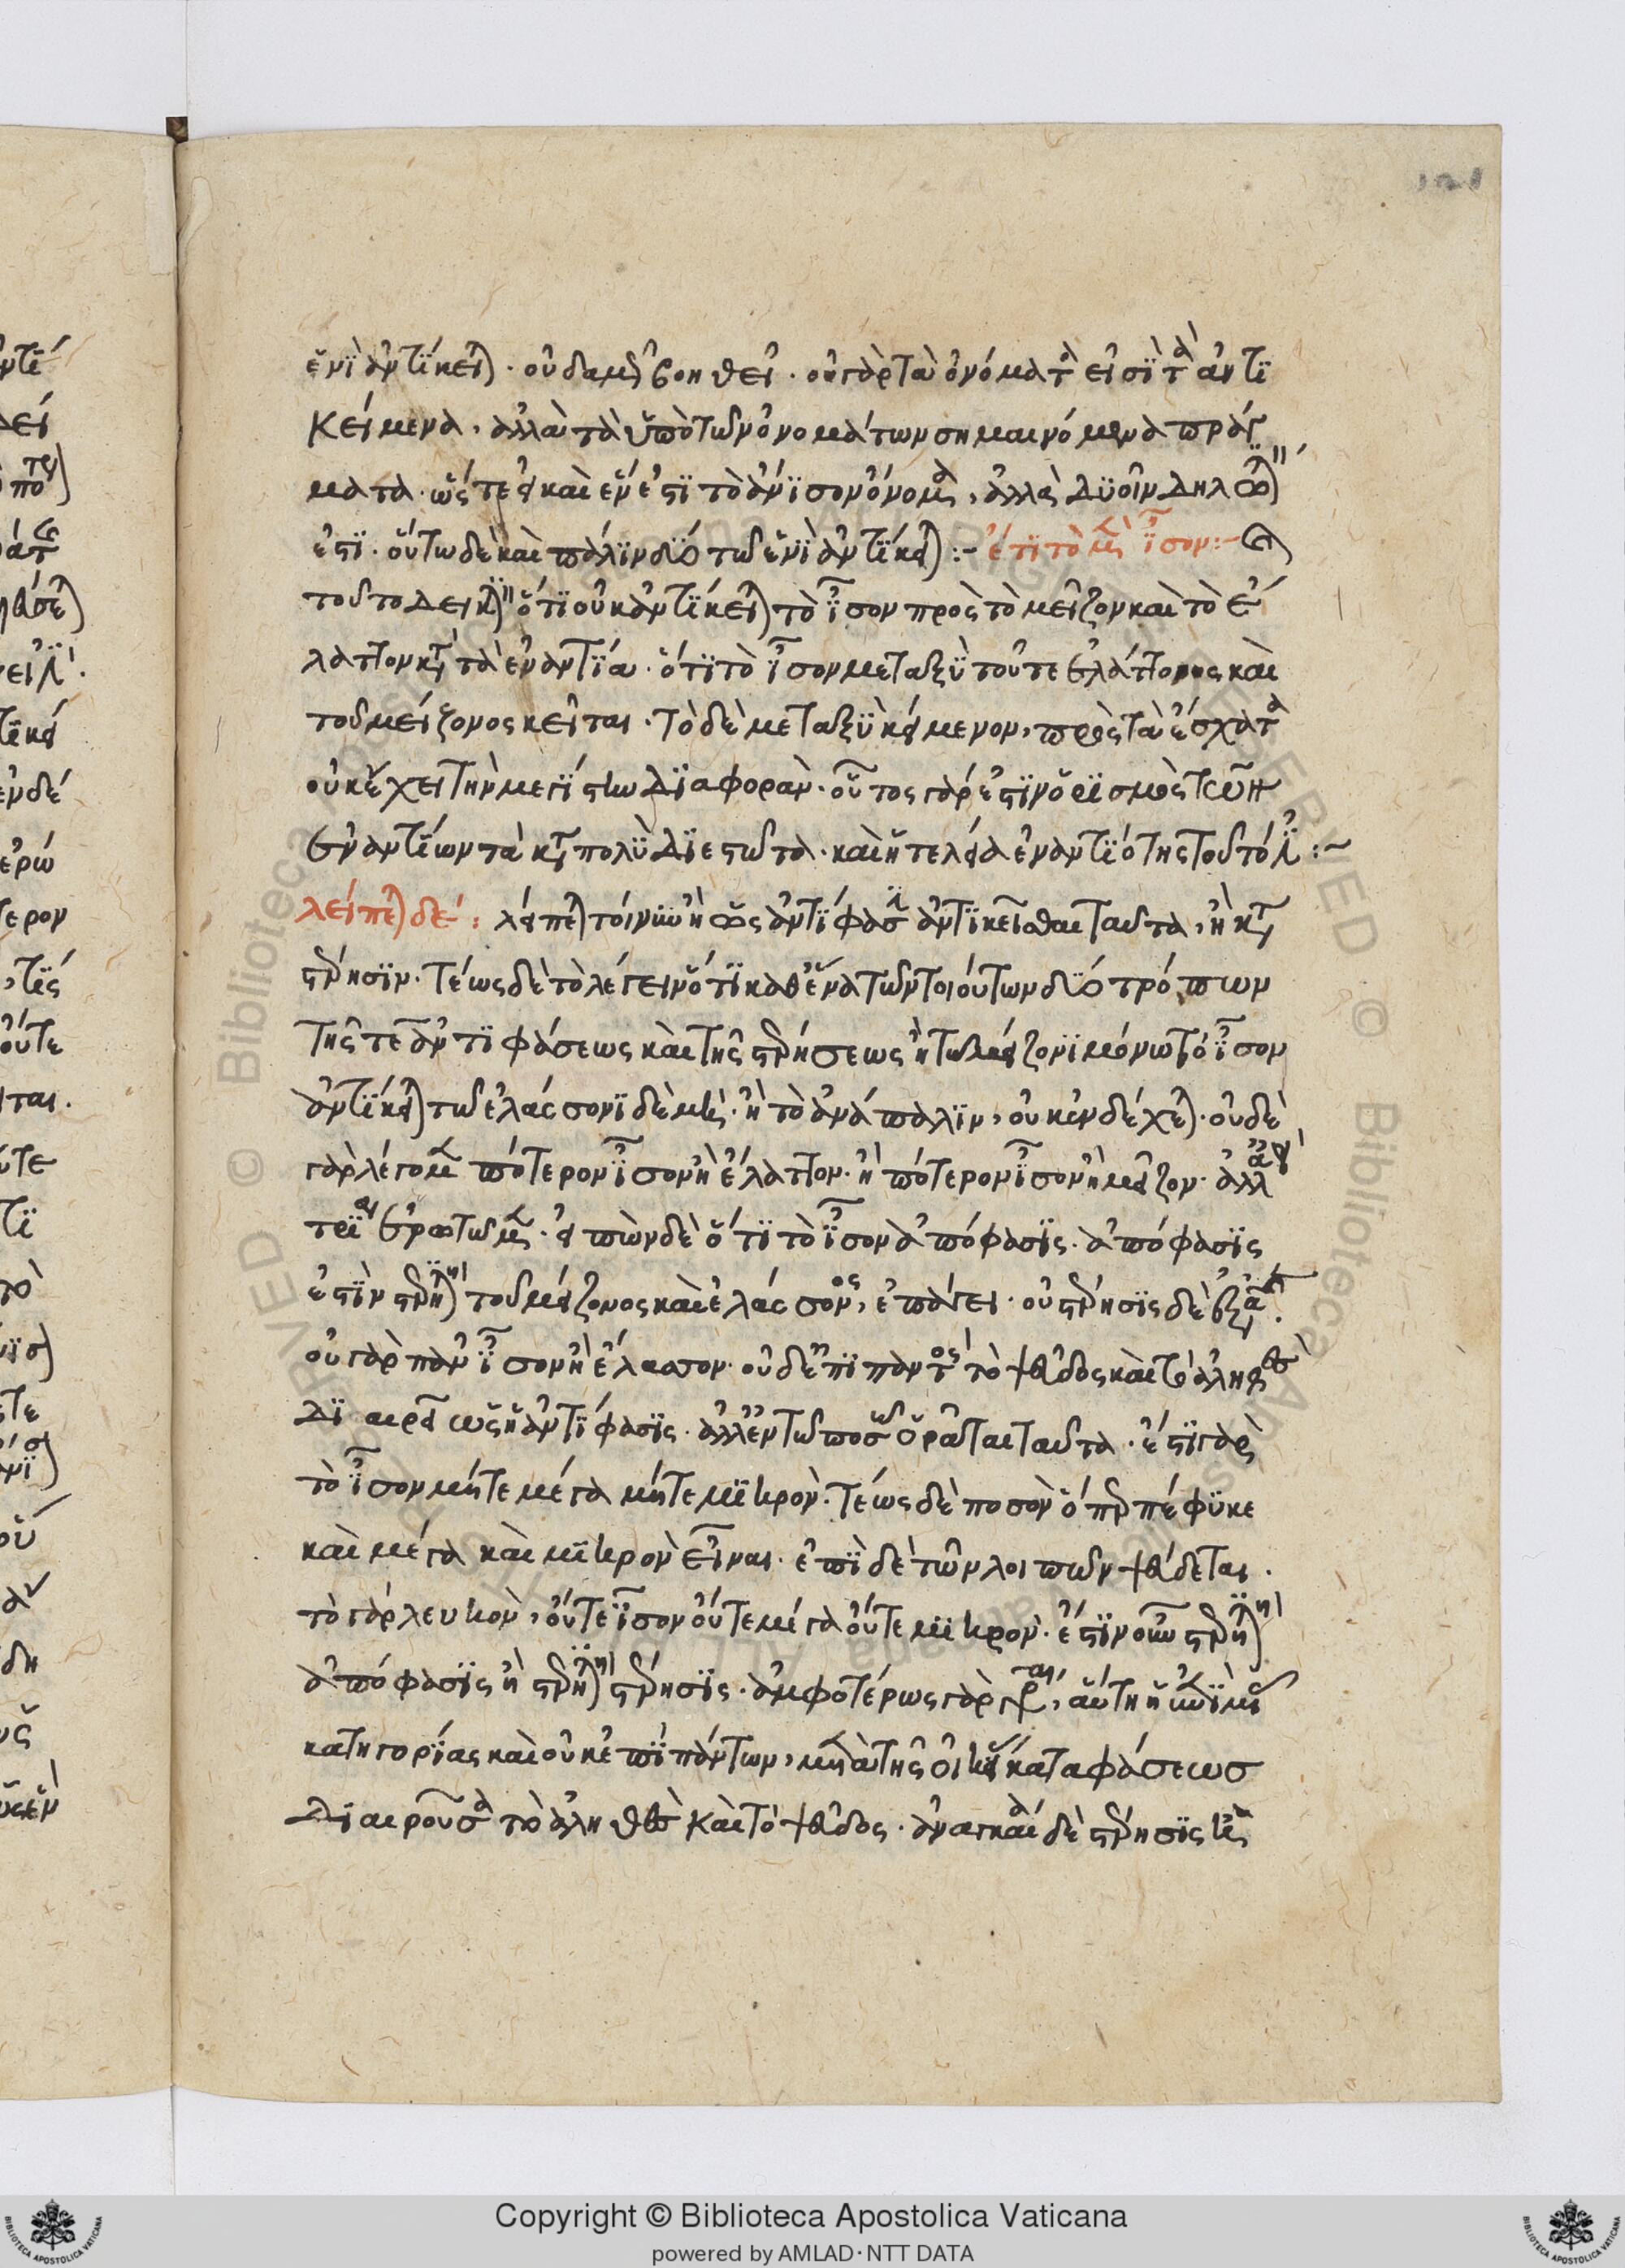 ἑνὶ ἀντίκει) · οὐδαμῶς βοηθεῖ · οὐ γὰρ τὰ ὀνόματα εἰσὶ τὰ ἀντι
κείμενα, ἀλλὰ τὰ ὑπὸ τῶν ὀνομάτων σημαινόμενα πράγ
ματα · ὥστε εἰ καὶ ἕν ἐστι τὸ ἄνισον ὄνομα, ἀλλὰ δυοῖν δηλω
ἐστι · οὕτω δὲ καὶ πάλιν δύο τῶ ἑνὶ ἀντίκει) :- ἔτι τὸ μὲν ἴσον :-
τοῦτο δεικ ὅτι οὐκ ἀντίκει) τὸ ἴσον πρὸς τὸ μεῖζον καὶ τὸ ἔ
λαττον κατὰ τὰ ἐναντία · ὅτι τὸ ἴσον μεταξὺ τοῦ τε ἐλάττονος καὶ
τοῦ μείζονος κεῖται · τὸ δὲ μεταξὺ κείμενον, πρὸς τὰ ἔσχατα
οὐκ ἔχει τὴν μεγίστην διαφορὰν · οὗτος γάρ ἐστιν ὁρισμὸς τῶν
ἐναντίων τὰ κατὰ πολὺ διεστῶτα · καὶ ἡ τελεία ἐναντιότης τοῦτό :~
λείπε) δέ : λείπε) τοίνυν ἢ ὡς ἀντίφασ ἀντικεῖσθαι ταῦτα, ἢ κατὰ
στέρησιν · τέως δὲ τὸ λέγειν ὅτι καθ' ἕνα τῶν τοιούτων δύο τρόπων
τῆς τε ἀντιφάσεως καὶ τῆς στερήσεως ἢ τῶ μείζονι μόνω τὸ ἴσον
ἀντίκει) τῶ ἐλάσσονι δὲ μὴ · ἢ τὸ ἀνάπαλιν, οὐκ ἐνδέχε) · οὐδὲ
γὰρ λέγομεν πότερον ἴσον ἢ ἔλαττον · ἢ πότερον ἴσον ἢ μεῖζον · ἀλλ
τρία ἐρωτῶμεν · εἰπὼν δὲ ὅτι τὸ ἴσον ἀπόφασις · ἀπόφασις
ἐστὶν στερη τοῦ μείζονος καὶ ἐλάσσονος, ἐπάγει · οὐ στέρησις δὲ ἐξ ἀ
οὐ γὰρ πᾶν ἴσον ἢ ἔλασσον · οὐδ' ἐπὶ παντὸς τὸ ψεῦδος καὶ τὸ ἀληθὲς
διαιρεῖ ὡς ἡ ἀντίφασις · ἀλλ' ἐν τῶ ποσῶ ὁρᾶται ταῦτα · ἔστι γὰρ
τὸ ἴσον μήτε μέγα μήτε μικρὸν · τέως δὲ ποσὸν ὅπερ πέφυκε
καὶ μέγα καὶ μικρὸν εἶναι · ἐπὶ δὲ τῶν λοιπῶν ψεύδεται ·
τὸ γάρ λευκὸν, οὔτε ἴσον οὔτε μέγα οὔτε μικρὸν · ἔστιν οὖν στερη
ἀπόφασις ἢ στερη στέρησις · ἀμφοτέρως γὰρ γρ, αὕτη ἡ
κατηγορίας καὶ οὐκ ἐπὶ πάντων, μετὰ τῆς οἰκείας καταφάσεως
διαιροῦσα τὸ ἀληθὲς καὶ τὸ ψεῦδος · ἀναγκαία δὲ στέρησις